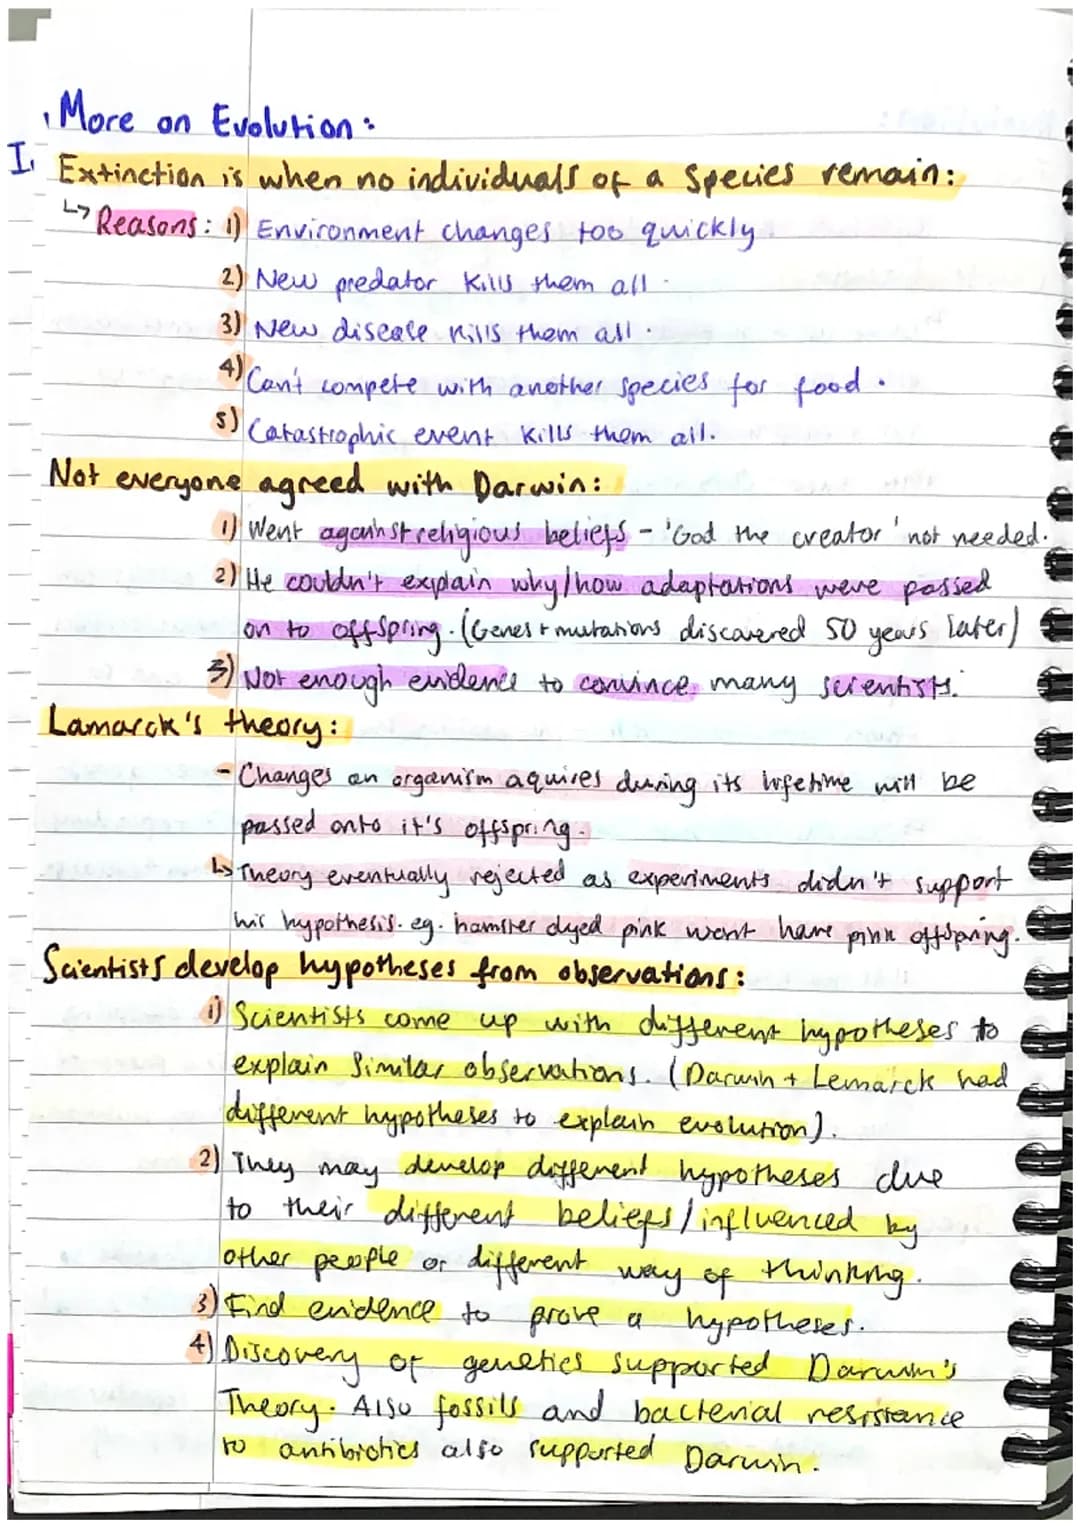 More on Evolution:
I. Extinction is when no individuals of a species remain:
↳ Reasons: 1) Environment changes too quickly
2) New predator kills them all.
3) New disease kills them all.
4) Can't compete with another species for food.
5) Catastrophic event kills them all.
Not everyone agreed with Darwin:
1) Went against religious beliefs - 'God the creator' not needed.
2) He couldn't explain why/how adaptations were passed
on to offspring. (Genes + mutations discovered 50 years later)
3) Not enough evidence to convince many scientists.
Lamarck's theory:
- Changes an organism aquires during its lifetime will be
passed onto it's offspring.
↳ Theory eventually rejected as experiments didn't support
his hypothesis. eg. hamster dyed pink won't have pink offspring.
Scientists develop hypotheses from observations:
1) Scientists come up with different hypotheses to
explain similar observations. (Darwin + Lemarck had
different hypotheses to explain evolution).
2) They may develop different hypotheses due
to their different beliefs/influenced by
other people or different way of thinking.
3) Find evidence to prove a hypotheses.
4) Discovery of genetics supported Darwin's
Theory. Also fossils and bacterial resistance
to antibiotics also supported Darwin.